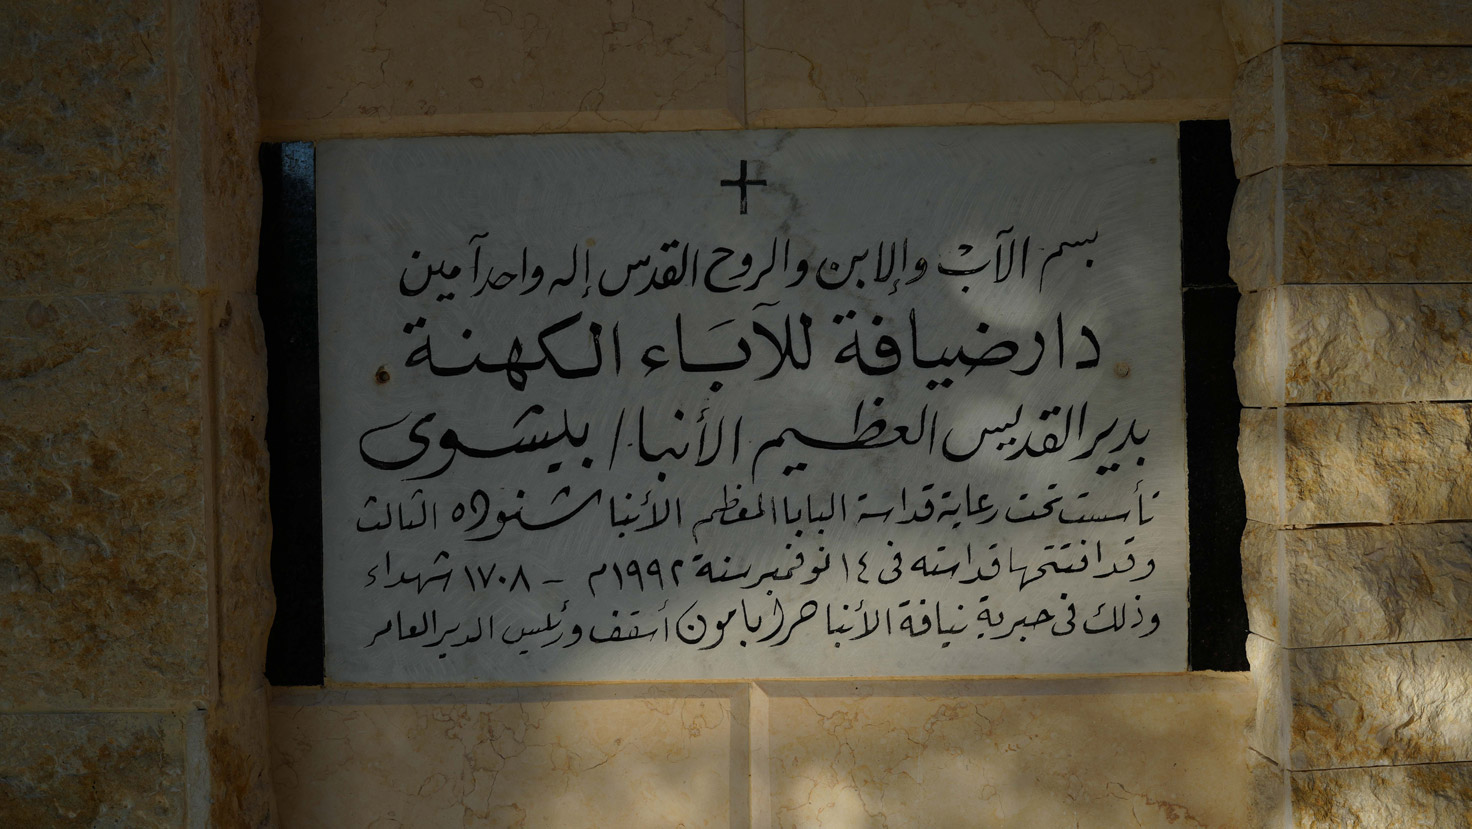 بسم الآب والإبن والروح القدس إله واحد آمين
دار ضيافة للآبَاء الكهنة
بدير القديس العظيم الأنبا / بيشوى
تأسست تحت رعاية قداسة البابا المعظم الأنبا شنوده الثالث
وقد افتتحها قداسته فى ١٤ نوفمبر سنة ١٩٩٢م - ١٧٠٨ شهداء
وذلك فى حبرية نيافة الأنبا صرابامون أسقف ورئيس الدير العامر